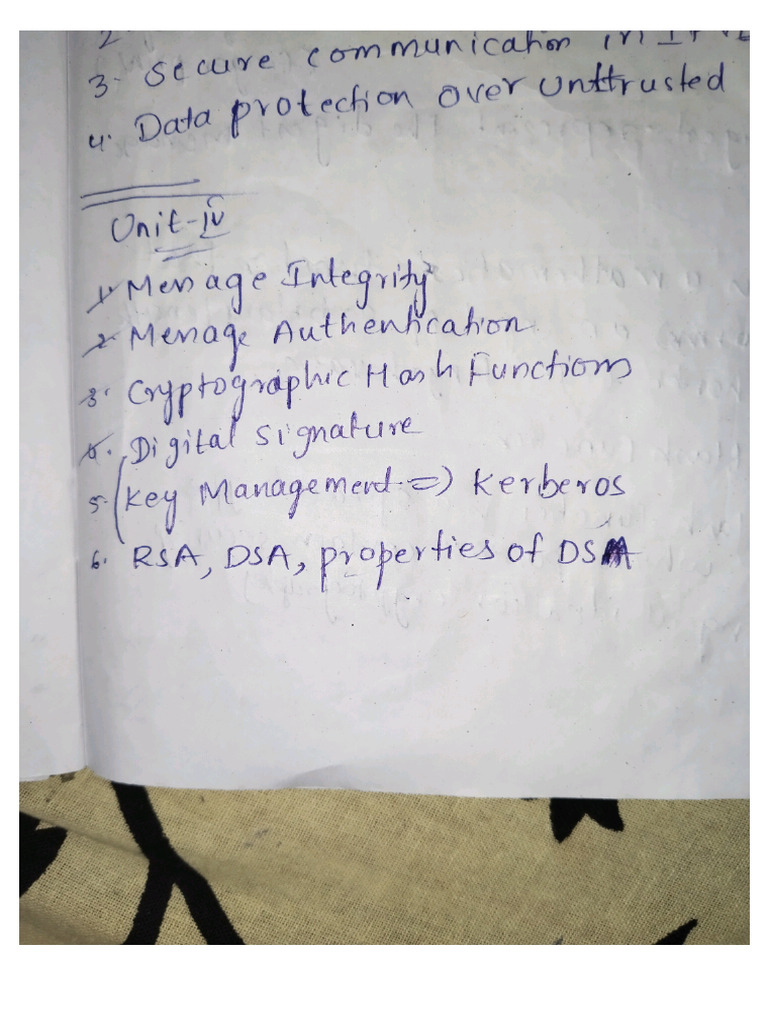 2.
3. Secure communication in
4. Data protection over unttrusted
Unit-iv
1. Message Integrity
2. Message Authentication
3. Cryptographic Hash Functions
4. Digital Signature
5. (Key Management => Kerberos
6. RSA, DSA, properties of DSA